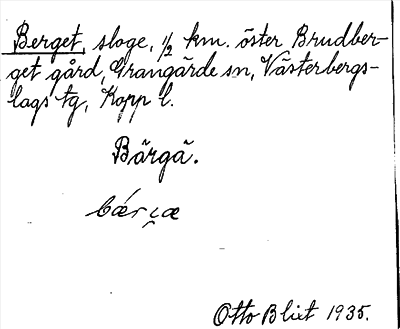 Berget, sloge, 1/2 km. öster Brudber-
get gård, Grangärde sn, Västerbergs-
lags tg, Kopp l.
Bärgä.
bǽrçæ
Otto Blixt 1935.